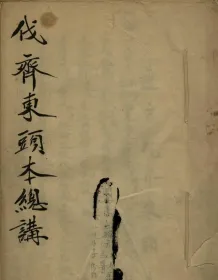 伐齊東頭本總講